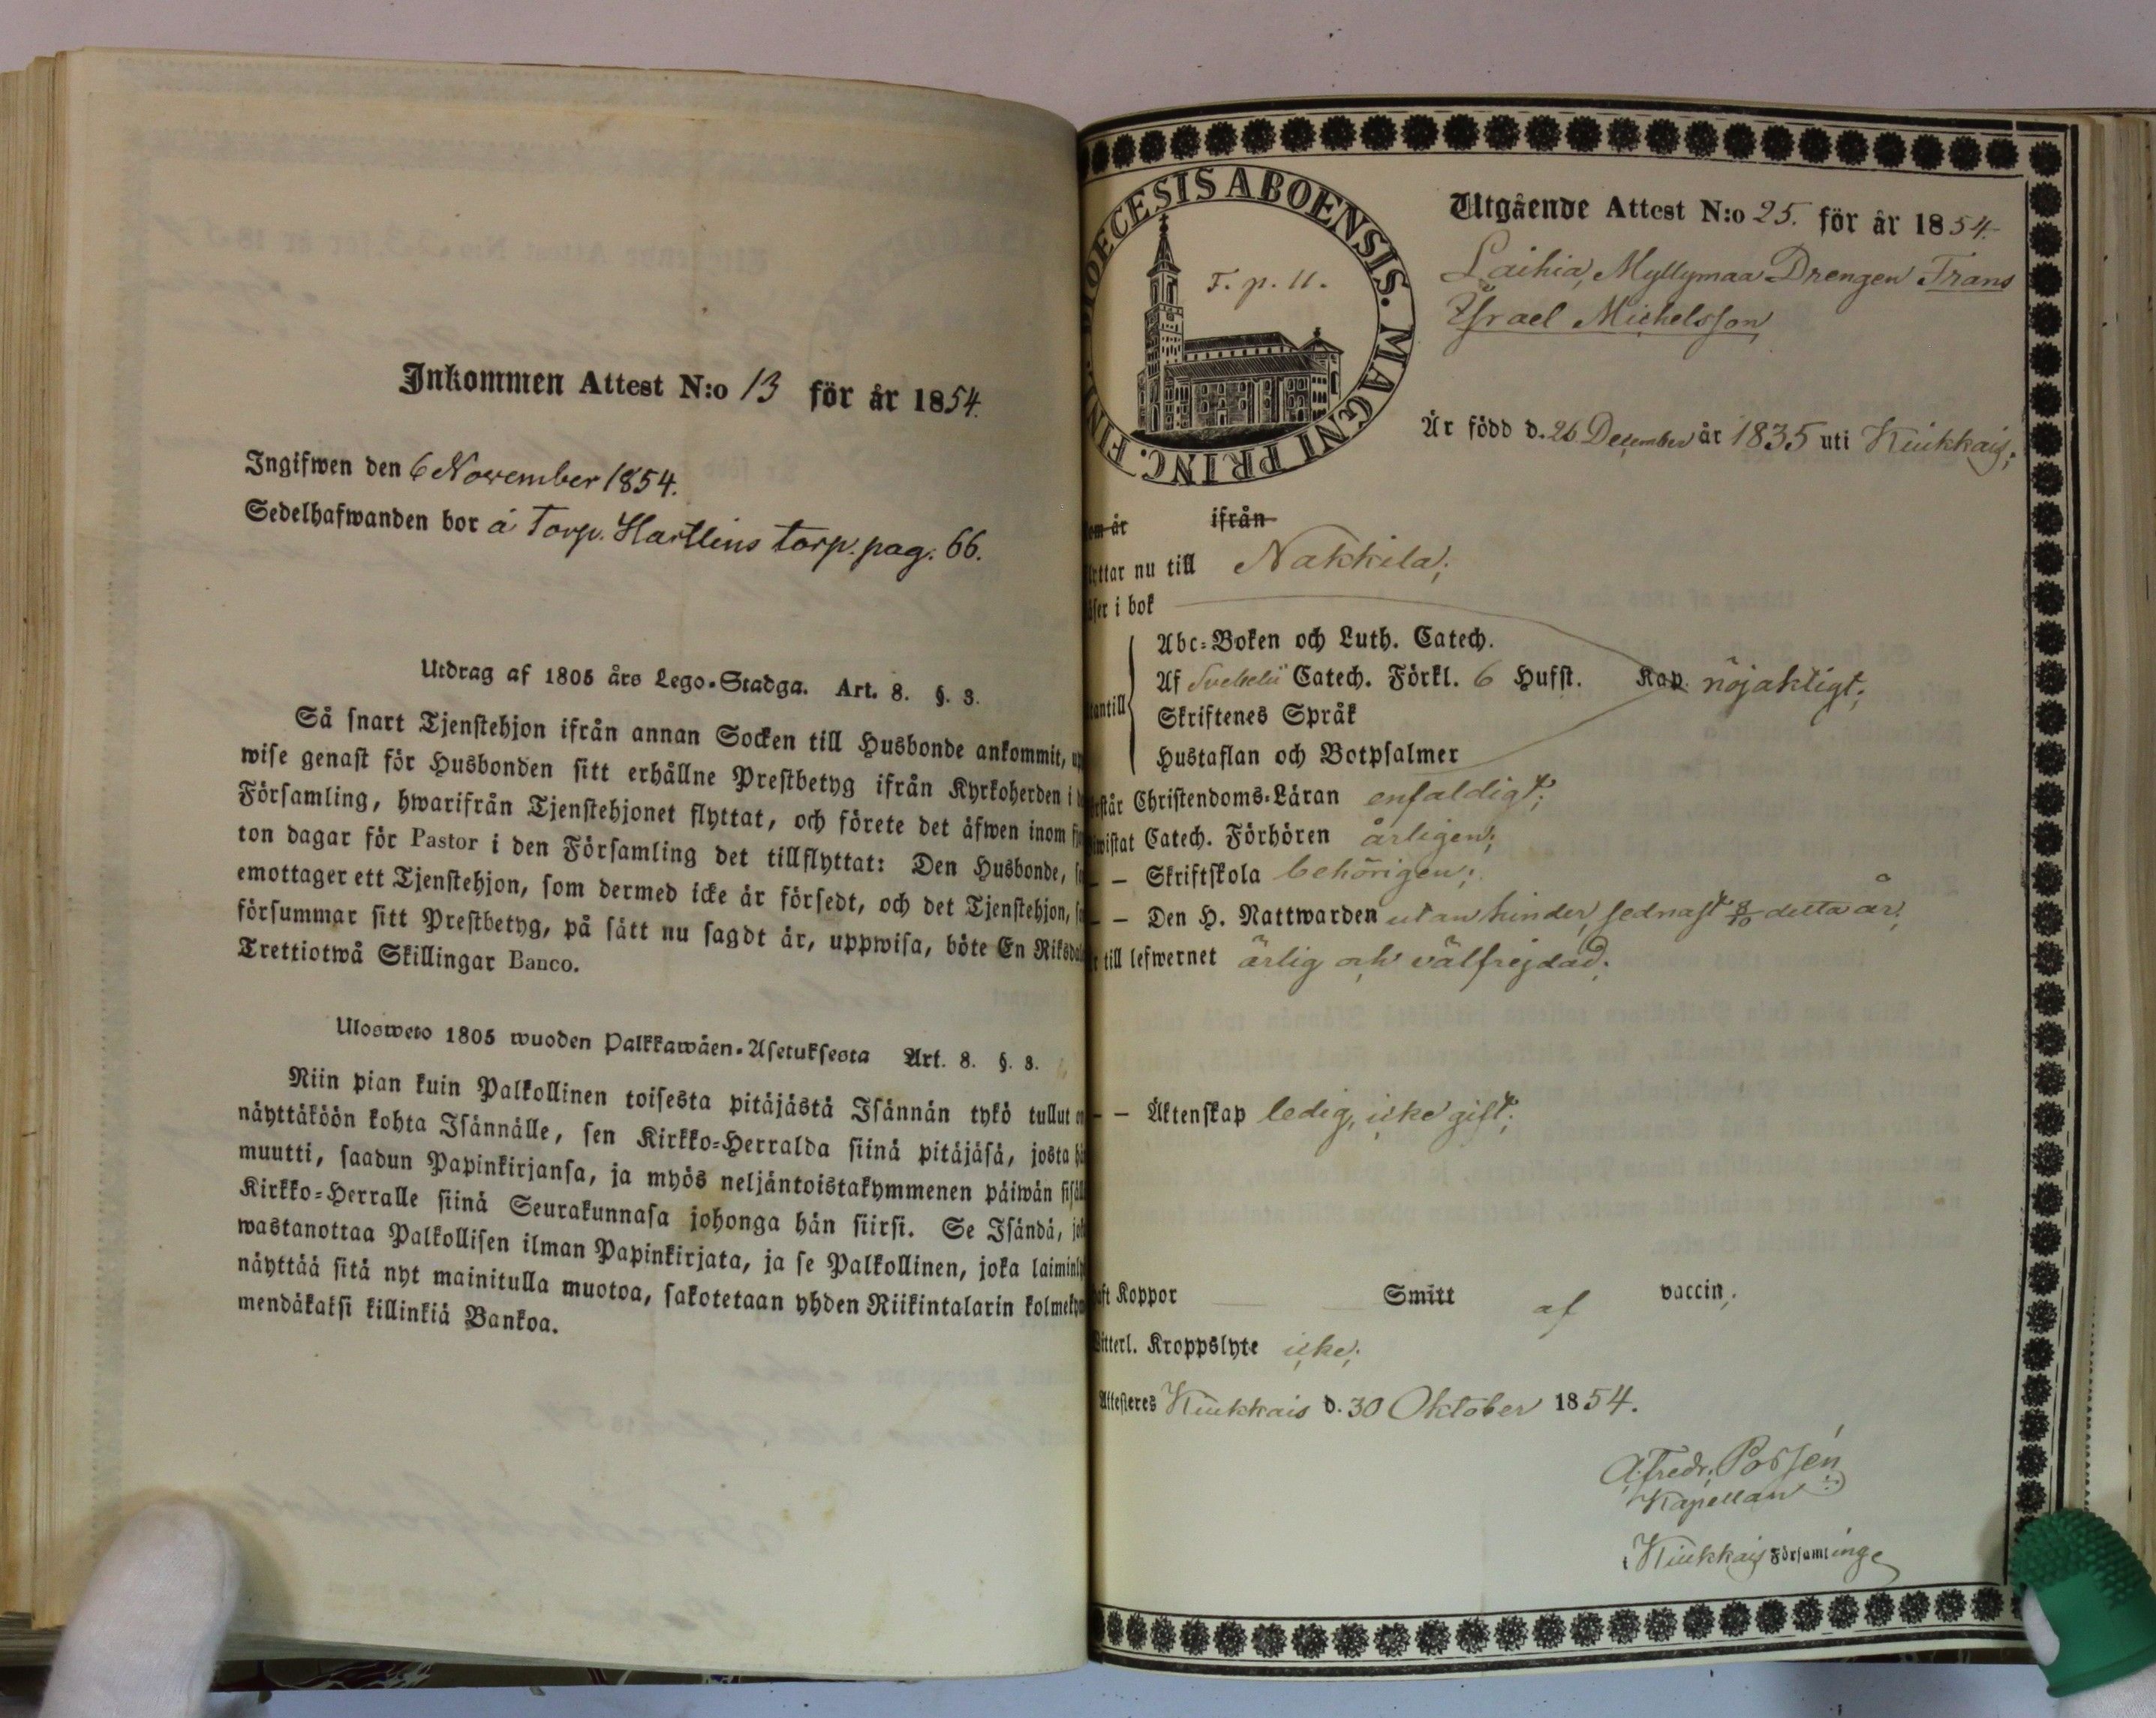 Inkommen Attest N:o 13 för år 1854.
Ingifwen den 6 November 1854.
Sedelhafwanden bor å Torp. Hartlins torp. pag. 66.
Utdrag af 1805 års Lego-Stadga. Art. 8. §. 3.
Så snart Tjenstehjon ifrån annan Socken till Husbonde ankommit,
wise genast för Husbonden sitt erhållne Prestbetyg ifrån Kyrkoherden i
Församling, hwarifrån Tjenstehjonet flyttat, och förete det äfwen inom
ton dagar för Pastor i den Församling det tillflyttat: Den Husbonde,
emottager ett Tjenstehjon, som dermed icke är försedt, och det Tjenstehjon,
försummar sitt Prestbetyg, på sätt nu sagdt är, uppwisa, böte En Riksdal
Trettiotwå Skillingar Banco.
Ulosweto 1805 wuoden Palkkawäen-Asetuksesta Art. 8. §. 3.
Niin pian kuin Palkollinen toisesta pitäjästä Isännän tykö tullut
näyttäköön kohta Isännälle, sen Kirkko-Herralda siinä pitäjäsä, josta
muutti, saadun Papinkirjansa, ja myös neljäntoistakymmenen päiwän
Kirkko-Herralle siinä Seurakunnasa johonga hän siirsi. Se Isändä,
wastanottaa Palkollisen ilman Papinkirjata, ja se Palkollinen, joka laimin
näyttää sitä nyt mainitulla muotoa, sakotetaan yhden Riikintalarin kolmeky
mendäkaksi killinkiä Bankoa.
DIOECESIS ABOENSIS. MAGNI PRINC. FIN
F. p. 11.
Utgående Attest N:o 25. för år 1854.
Laihia, Myllymaa Drengen Frans
Israel Michelsson
Är född d. 26 December år 1835 uti Kiukkais;
om är ifrån
ttar nu till Nakkila;
ser i bok
Abc-Boken och Luth. Catech.
Af Svebelii Catech. Förkl. 6 Hufst. Kap. nöjaktigt;
antill
Skriftenes Språk
Hustaflan och Botpsalmer
står Christendoms-Läran enfaldigt;
wistat Catech. Förhören årligen;
— — Skriftskola behörigen;
— — Den H. Nattwarden utan hinder, sednast 8/10 detta år;
till lefwernet ärlig och välfrejdad;
— — Äktenskap ledig, icke gift;
aft Koppor — — Smitt af vaccin;
itterl. Kroppslyte icke;
Attesteres Kiukkais d. 30 Oktober 1854.
A. Fredr. Possén
Kapellan
i Kiukkais Församling